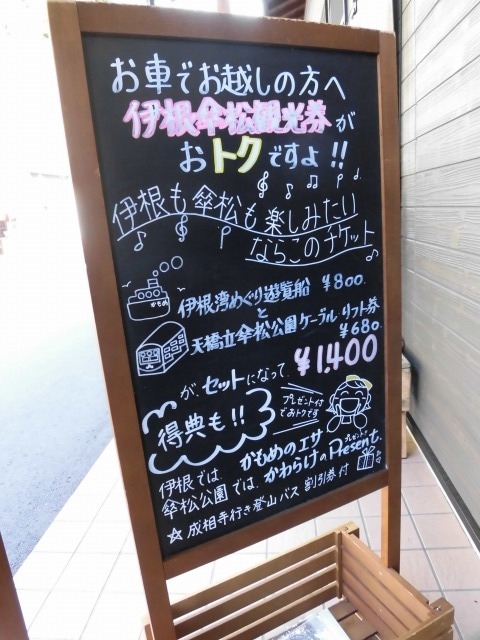 お車でお越しの方へ
伊根傘松観光券が
おトクですよ!!
伊根も傘松も楽しみたい
ならこのチケット
かもめ
伊根湾めぐり遊覧船 ¥800.
と
天橋立傘松公園ケーラル・リフト券
¥680.
¥1,400
が、セットになって、
プレゼント付
でおトクです
得典も!!
伊根では、かもめのエサ
プレゼント
傘松公園では、かわらけのPresent.
☆成相寺行き登山バス割引券付